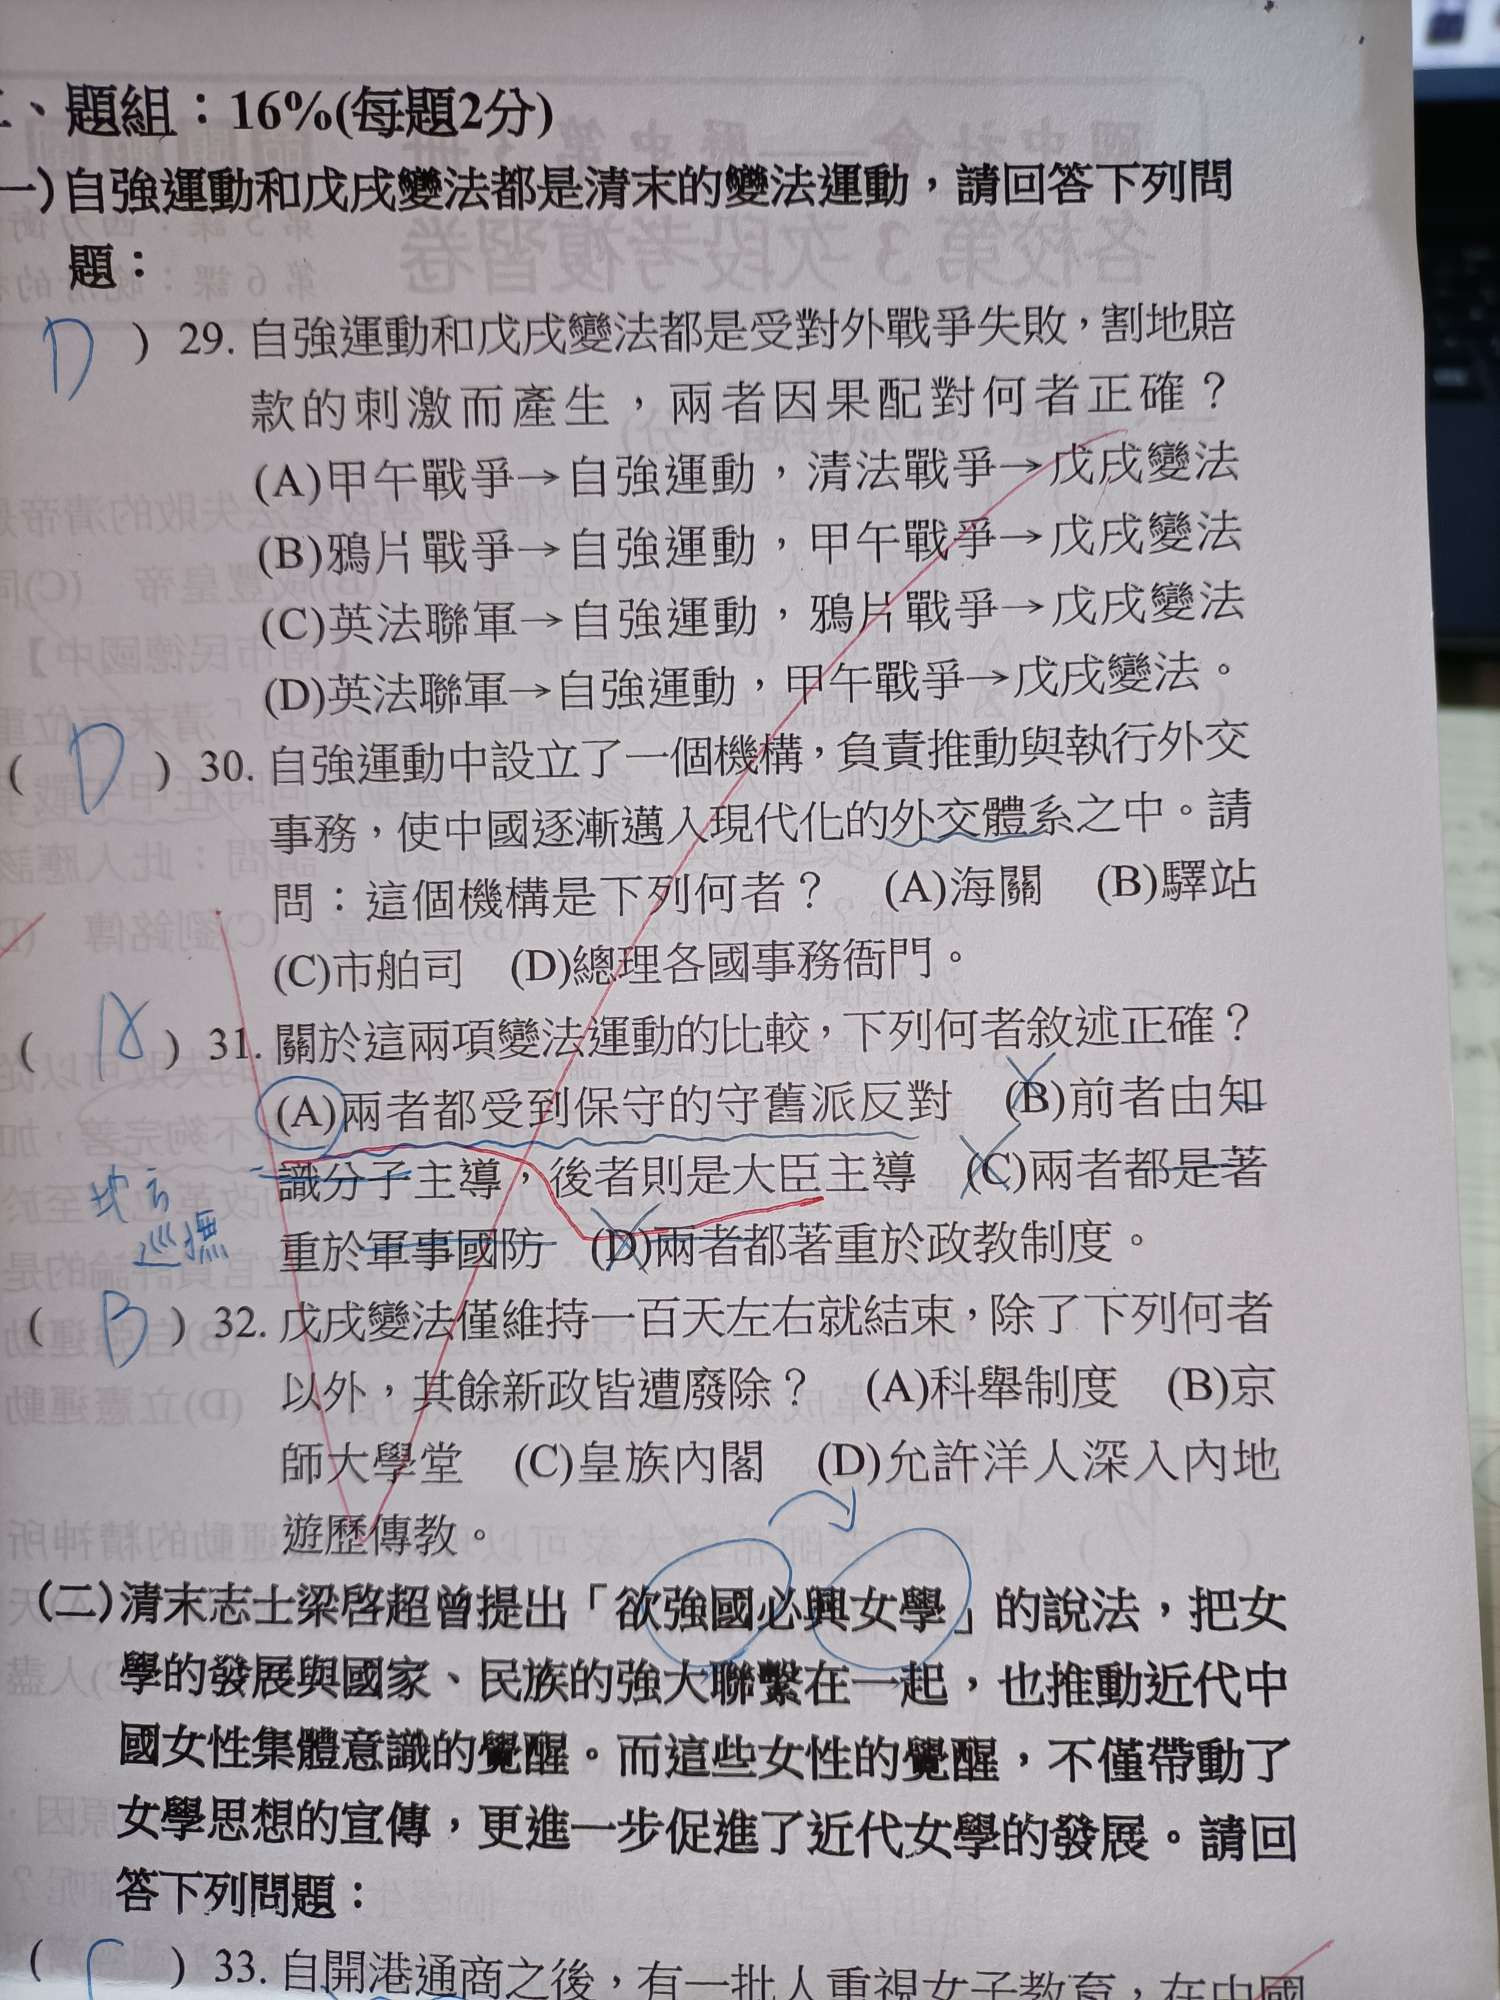 、題組：16%(每題2分)
一)自強運動和戊戌變法都是清末的變法運動，請回答下列問
題：
D ) 29. 自強運動和戊戌變法都是受對外戰爭失敗，割地賠
款的刺激而產生，兩者因果配對何者正確？
(A)甲午戰爭→自強運動，清法戰爭→戊戌變法
(B)鴉片戰爭→自強運動，甲午戰爭→戊戌變法
(C)英法聯軍→自強運動，鴉片戰爭→戊戌變法
(D)英法聯軍→自強運動，甲午戰爭→戊戌變法。
( D ) 30. 自強運動中設立了一個機構，負責推動與執行外交
事務，使中國逐漸邁入現代化的外交體系之中。請
問：這個機構是下列何者？ (A)海關 (B)驛站
(C)市舶司 (D)總理各國事務衙門。
( A ) 31. 關於這兩項變法運動的比較，下列何者敘述正確？
(A)兩者都受到保守的守舊派反對 (B)前者由知
識分子主導，後者則是大臣主導 (C)兩者都是著
地方
巡撫
重於軍事國防 (D)兩者都著重於政教制度。
( B ) 32. 戊戌變法僅維持一百天左右就結束，除了下列何者
以外，其餘新政皆遭廢除？ (A)科舉制度 (B)京
師大學堂 (C)皇族內閣 (D)允許洋人深入內地
遊歷傳教。
(二)清末志士梁啓超曾提出「欲強國必興女學」的說法，把女
學的發展與國家、民族的強大聯繫在一起，也推動近代中
國女性集體意識的覺醒。而這些女性的覺醒，不僅帶動了
女學思想的宣傳，更進一步促進了近代女學的發展。請回
答下列問題：
( C ) 33. 自開港通商之後，有一批人重視女子教育，在中國